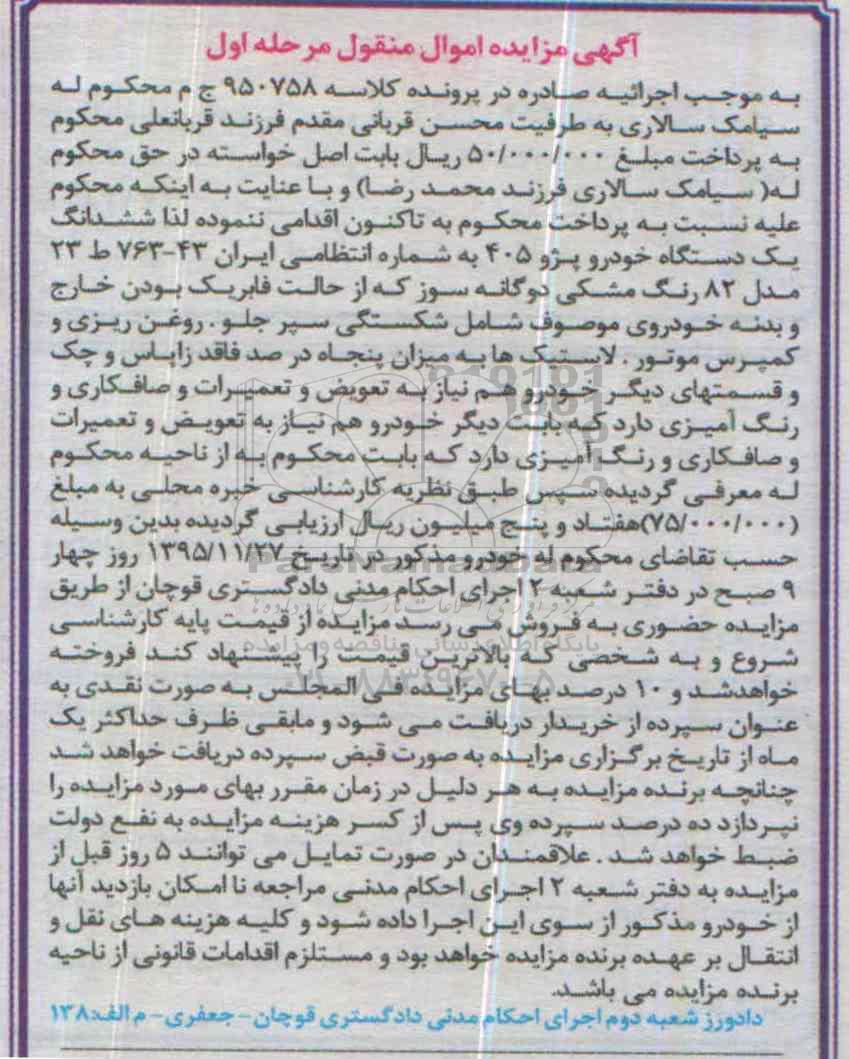 آگهی مزایده اموال منقول مرحله اول
به موجب اجرائیه صادره در پرونده کلاسه ۹۵۰۷۵۸ ج م محکوم له
سیامک سالاری به طرفیت محسن قربانی مقدم فرزند قربانعلی محکوم
به پرداخت مبلغ ۵۰/۰۰۰/۰۰۰ ریال بابت اصل خواسته در حق محکوم
له( سیامک سالاری فرزند محمد رضا) و با عنایت به اینکه محکوم
علیه نسبت به پرداخت محکوم به تاکنون اقدامی ننموده لذا ششدانگ
یک دستگاه خودرو پژو ۴۰۵ به شماره انتظامی ایران ۴۳-۷۶۳ ط ۲۳
مدل ۸۲ رنگ مشکی دوگانه سوز که از حالت فابریک بودن خارج
و بدنه خودروی موصوف شامل شکستگی سپر جلو . روغن ریزی و
کمپرس موتور . لاستیک ها به میزان پنجاه در صد فاقد زاپاس و چک
و قسمتهای دیگر خودرو هم نیاز به تعویض و تعمیرات و صافکاری و
رنگ آمیزی دارد که بابت دیگر خودرو هم نیاز به تعویض و تعمیرات
و صافکاری و رنگ آمیزی دارد که بابت محکوم به از ناحیه محکوم
له معرفی گردیده سپس طبق نظریه کارشناسی خبره محلی به مبلغ
(۷۵/۰۰۰/۰۰۰)هفتاد و پنج میلیون ریال ارزیابی گردیده بدین وسیله
حسب تقاضای محکوم له خودرو مذکور در تاریخ ۱۳۹۵/۱۱/۲۷ روز چهار
۹ صبح در دفتر شعبه ۲ اجرای احکام مدنی دادگستری قوچان از طریق
مزایده حضوری به فروش می رسد مزایده از قیمت پایه کارشناسی
شروع و به شخصی که بالاترین قیمت را پیشنهاد کند فروخته
خواهدشد و ۱۰ درصد بهای مزایده فی المجلس به صورت نقدی به
عنوان سپرده از خریدار دریافت می شود و مابقی ظرف حداکثر یک
ماه از تاریخ برگزاری مزایده به صورت قبض سپرده دریافت خواهد شد
چنانچه برنده مزایده به هر دلیل در زمان مقرر بهای مورد مزایده را
نپردازد ده درصد سپرده وی پس از کسر هزینه مزایده به نفع دولت
ضبط خواهد شد . علاقمندان در صورت تمایل می توانند ۵ روز قبل از
مزایده به دفتر شعبه ۲ اجرای احکام مدنی مراجعه تا امکان بازدید آنها
از خودرو مذکور از سوی این اجرا داده شود و کلیه هزینه های نقل و
انتقال بر عهده برنده مزایده خواهد بود و مستلزم اقدامات قانونی از ناحیه
برنده مزایده می باشد.
دادورز شعبه دوم اجرای احکام مدنی دادگستری قوچان- جعفری- م الف:۱۳۸